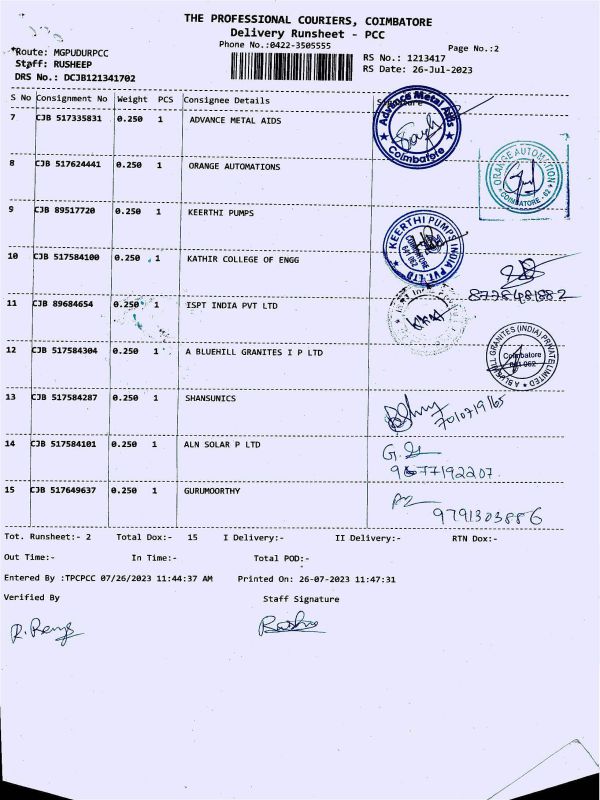 THE PROFESSIONAL COURIERS, COIMBATORE
Delivery Runsheet - PCC
Phone No.:0422-3505555
Page No.:2
*Route: MGPUDURPCC
RS No.: 1213417
Staff: RUSHEEP
RS Date: 26-Jul-2023
DRS No.: DCJB121341702
S No Consignment No Weight PCS Consignee Details
7 CJB 517335831 0.250 1 ADVANCE METAL AIDS
Advance Metal Aids
Coimbatore
8 CJB 517624441 0.250 1 ORANGE AUTOMATIONS
ORANGE AUTOMATION
COIMBATORE - 62
9 CJB 89517720 0.250 1 KEERTHI PUMPS
KEERTHI PUMPS INDIA PVT. LTD
COIMBATORE
641 062
10 CJB 517584100 0.250 1 KATHIR COLLEGE OF ENGG
11 CJB 89684654 0.250 1 ISPT INDIA PVT LTD
12 CJB 517584304 0.250 1 A BLUEHILL GRANITES I P LTD
A BLUEHILL GRANITES (INDIA) PRIVATE LIMITED
Coimbatore
641 062
13 CJB 517584287 0.250 1 SHANSUNICS
7010719165
14 CJB 517584101 0.250 1 ALN SOLAR P LTD
15 CJB 517649637 0.250 1 GURUMOORTHY
9791303886
Tot. Runsheet:- 2 Total Dox:- 15 I Delivery:- II Delivery:- RTN Dox:-
Out Time:- In Time:- Total POD:-
Entered By :TPCPCC 07/26/2023 11:44:37 AM Printed On: 26-07-2023 11:47:31
Verified By Staff Signature